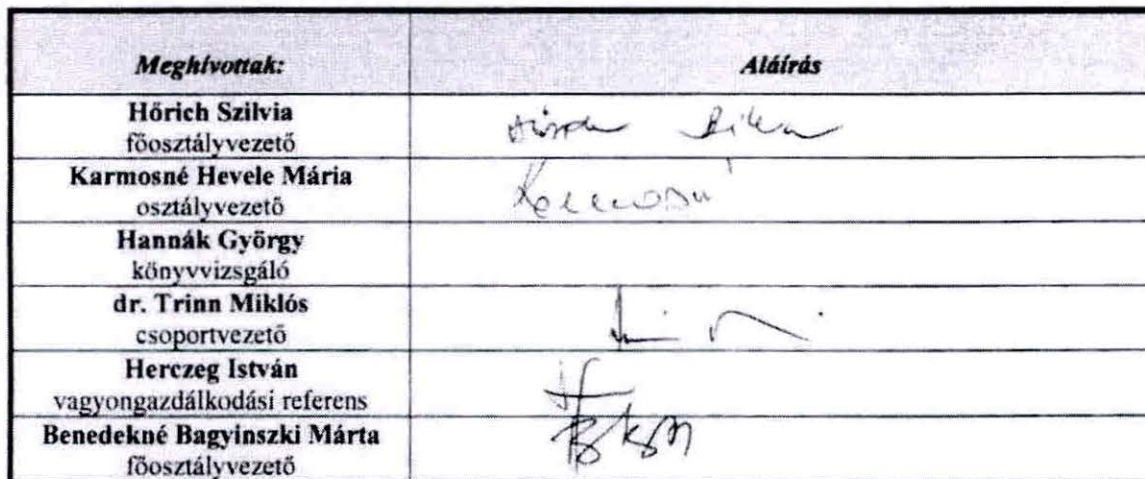 Meghívottak: Aláírás
Hőrich Szilvia
főosztályvezető
Karmosné Hevele Mária
osztályvezető
Karmosné
Hannák György
könyvvizsgáló
dr. Trinn Miklós
csoportvezető
Herczeg István
vagyongazdálkodási referens
Benedekné Bagyinszki Márta
főosztályvezető